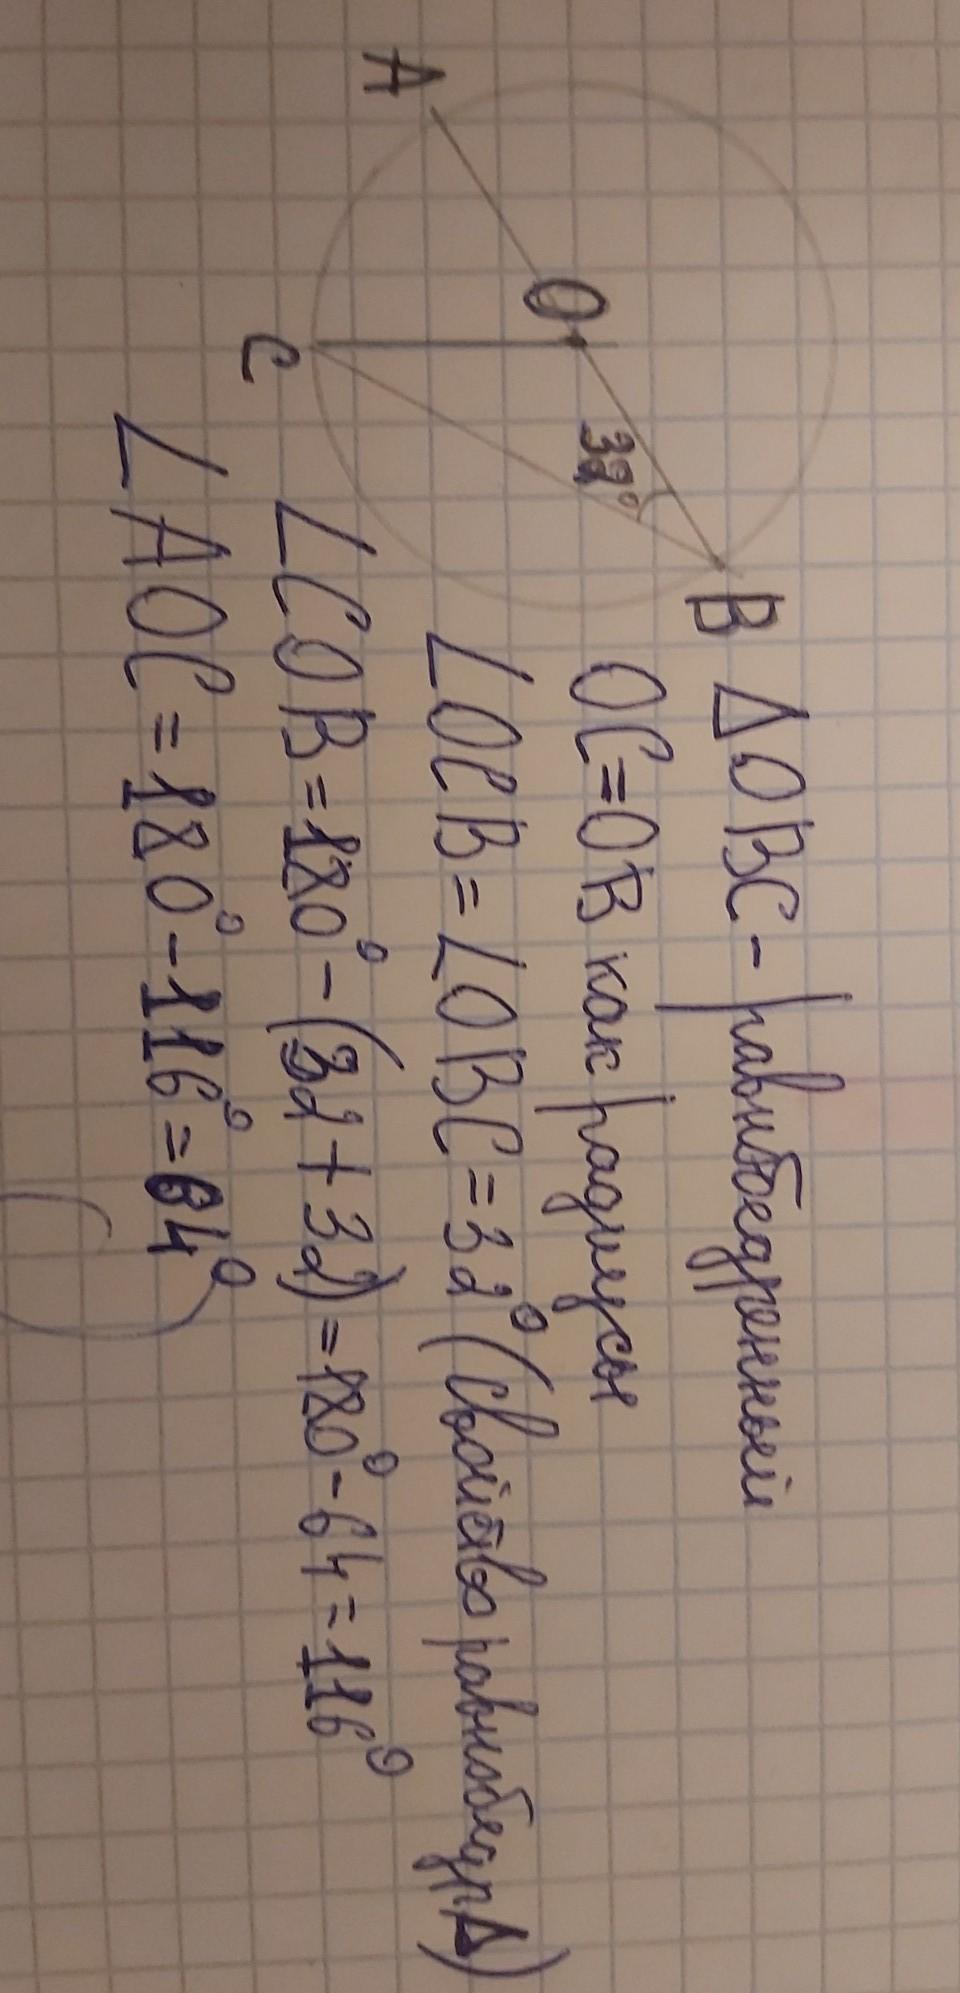 A
O
B
32°
C
ΔOBC - равнобедренный
OC=OB как радиусы
∠OCB=∠OBC=32° (Свойство равнобедр. Δ)
∠COB=180°-(32+32)=180°-64=116°
∠AOC=180°-116°=64°